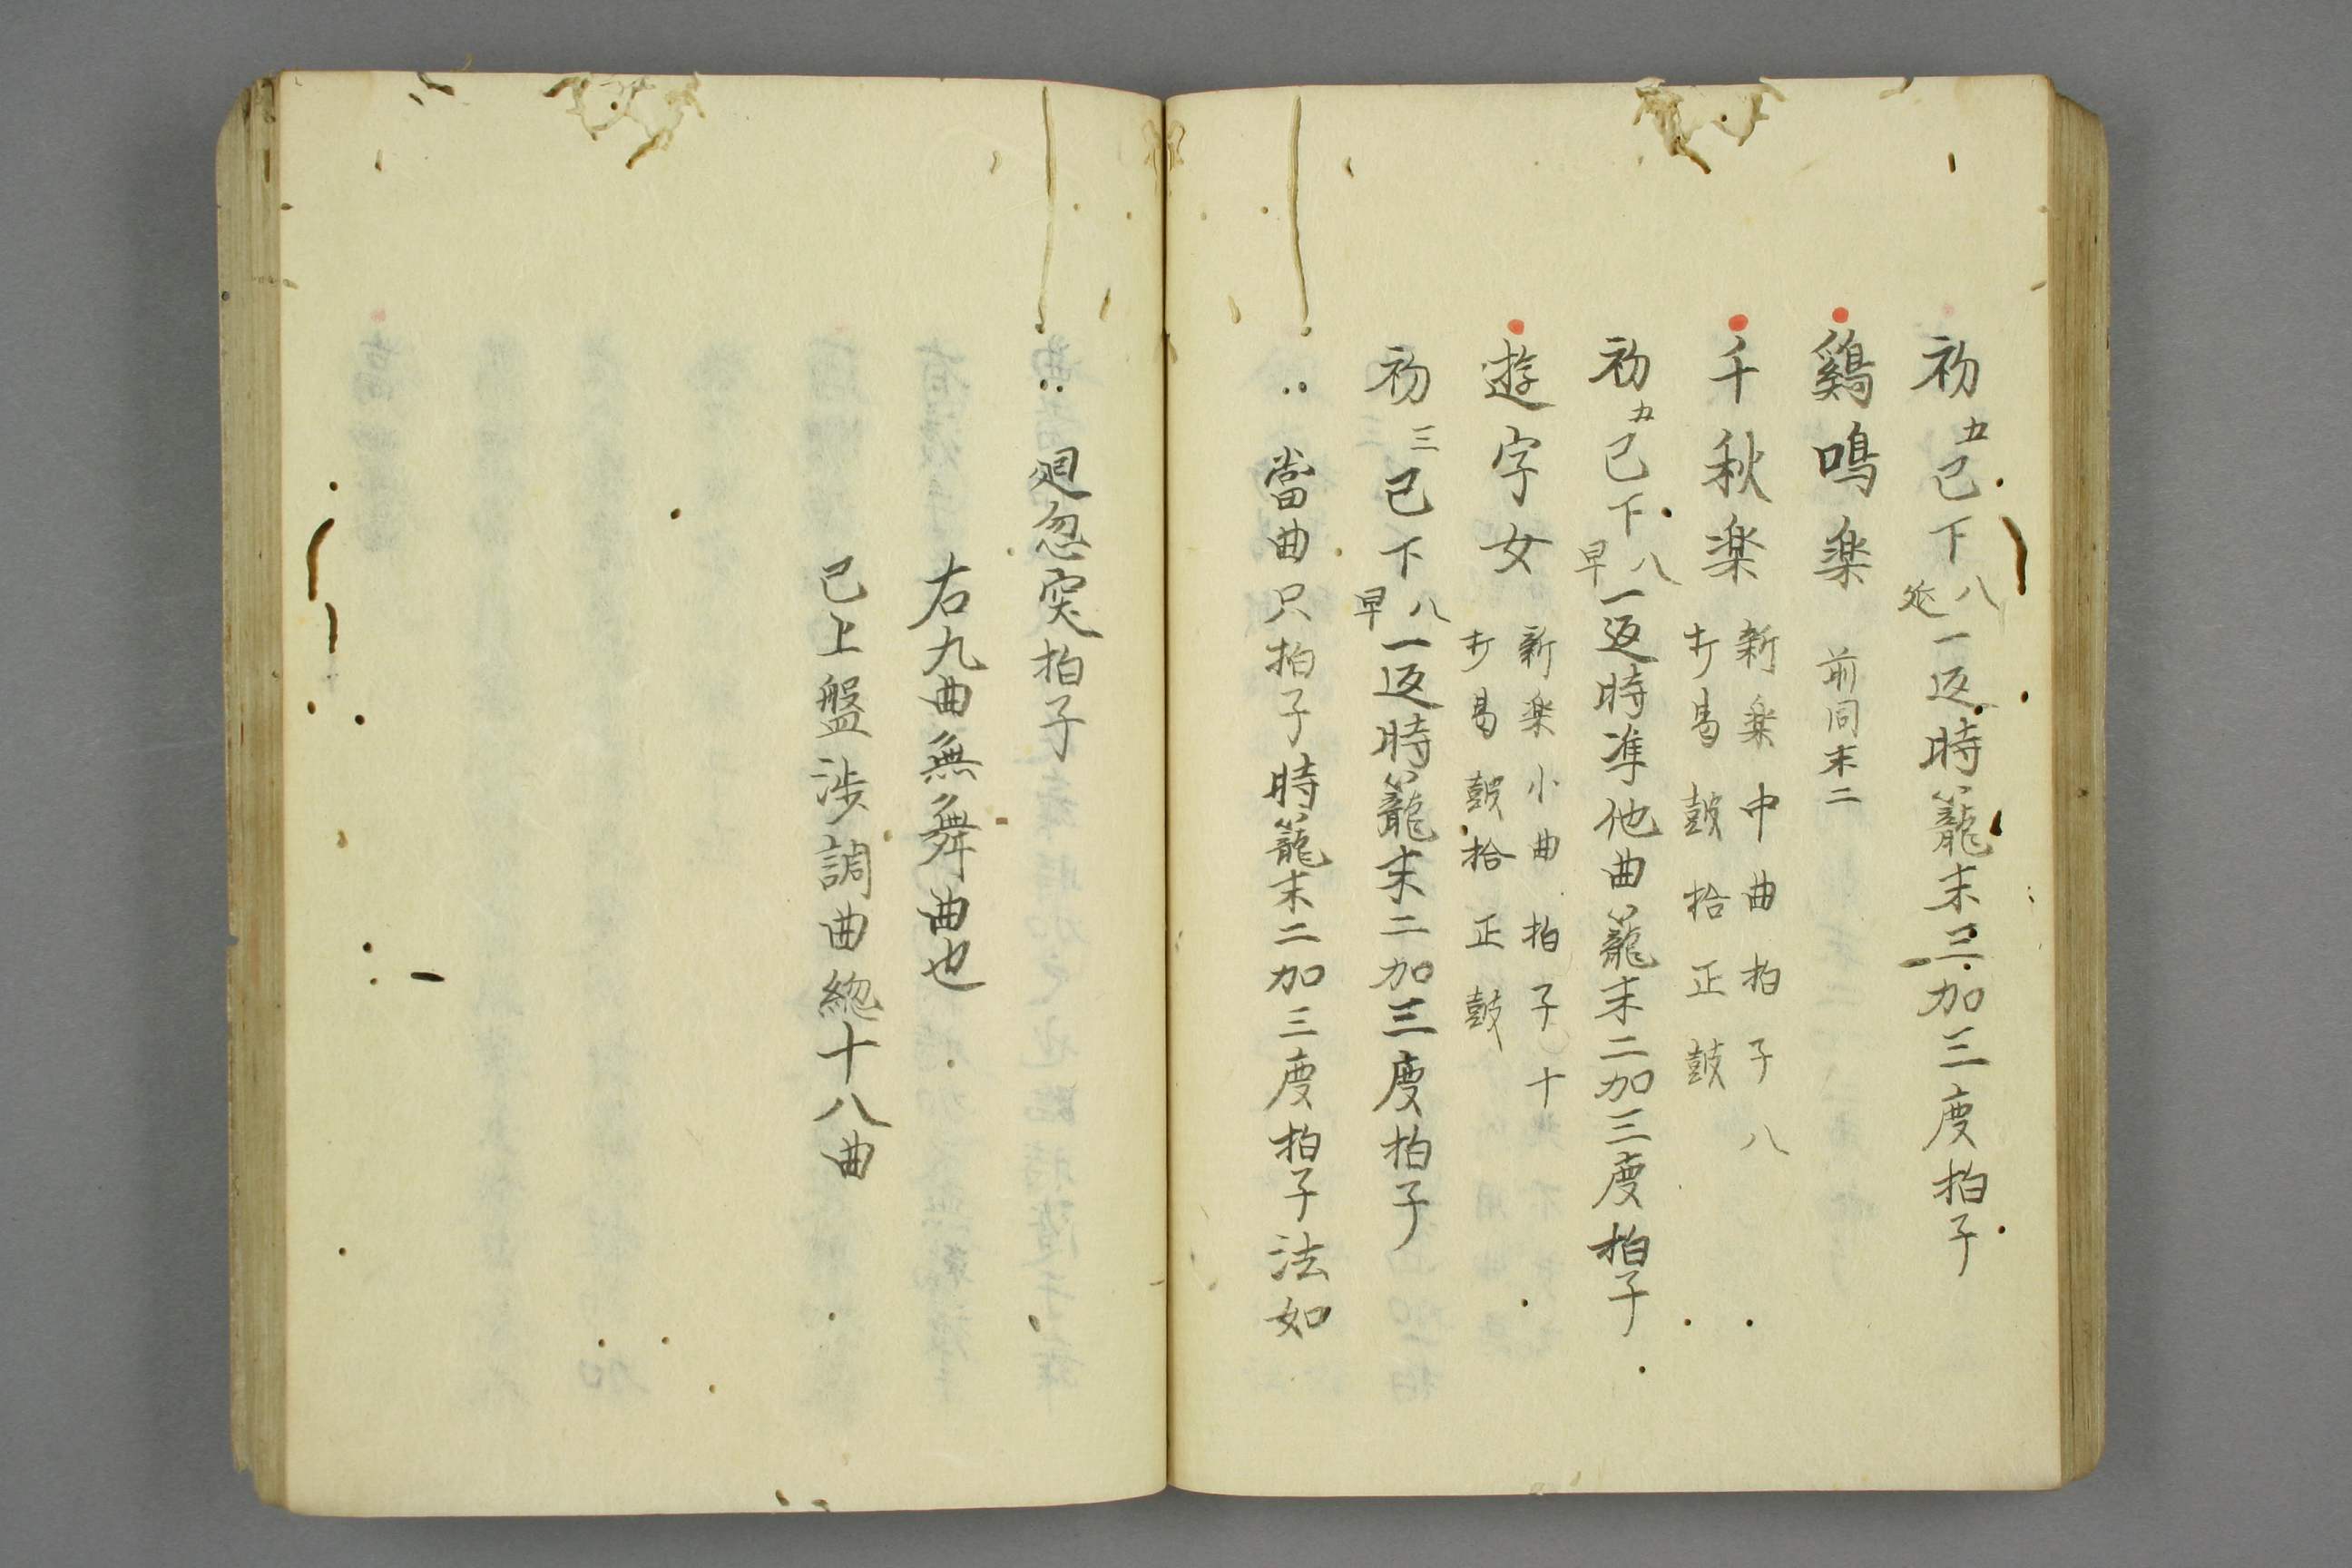 初五已下八延一返時籠末三加三度拍子
鷄鳴楽 前同末二
千秋楽 新楽中曲拍子八
打易鼓拾正鼓
初五已下八早一返時准他曲籠末二加三度拍子
遊字女 新楽小曲拍子十
打易鼓拾正鼓
初三已下八早一返時籠末二加三度拍子
當曲只拍子時籠末二加三度拍子法如
廻忽突拍子
右九曲無舞曲也
已上盤渉調曲総十八曲